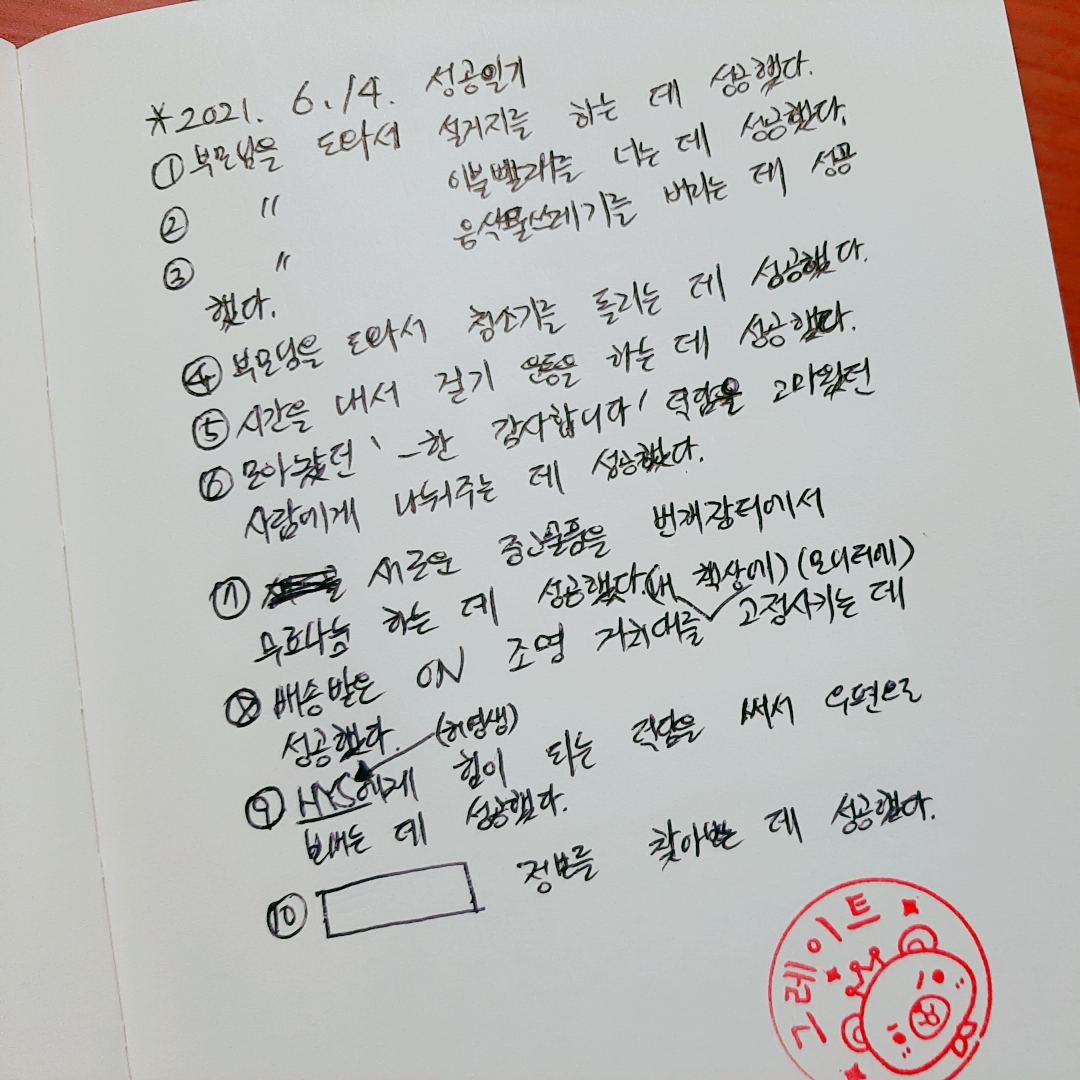 *2021. 6. 14. 성공일기
① 부모님을 도와서 설거지를 하는 데 성공했다.
② 〃 이불빨래를 너는 데 성공했다.
③ 〃 음식물쓰레기를 버리는 데 성공
했다.
④ 부모님을 도와서 청소기를 돌리는 데 성공했다.
⑤ 시간을 내서 걷기 운동을 하는 데 성공했다.
⑥ 모아놨던 '~한 감사합니다' 덕담을 고마웠던
사람에게 나눠주는 데 성공했다.
⑦ 새로운 중고물품을 번개장터에서
무료나눔 하는 데 성공했다. (내 책상에) (모니터에)
⑧ 배송받은 ON 조명 거치대를 고정시키는 데
성공했다. (허영생)
⑨ HYS에게 힘이 되는 덕담을 써서 우편으로
보내는 데 성공했다.
⑩ 정보를 찾아보는 데 성공했다.
그레이트